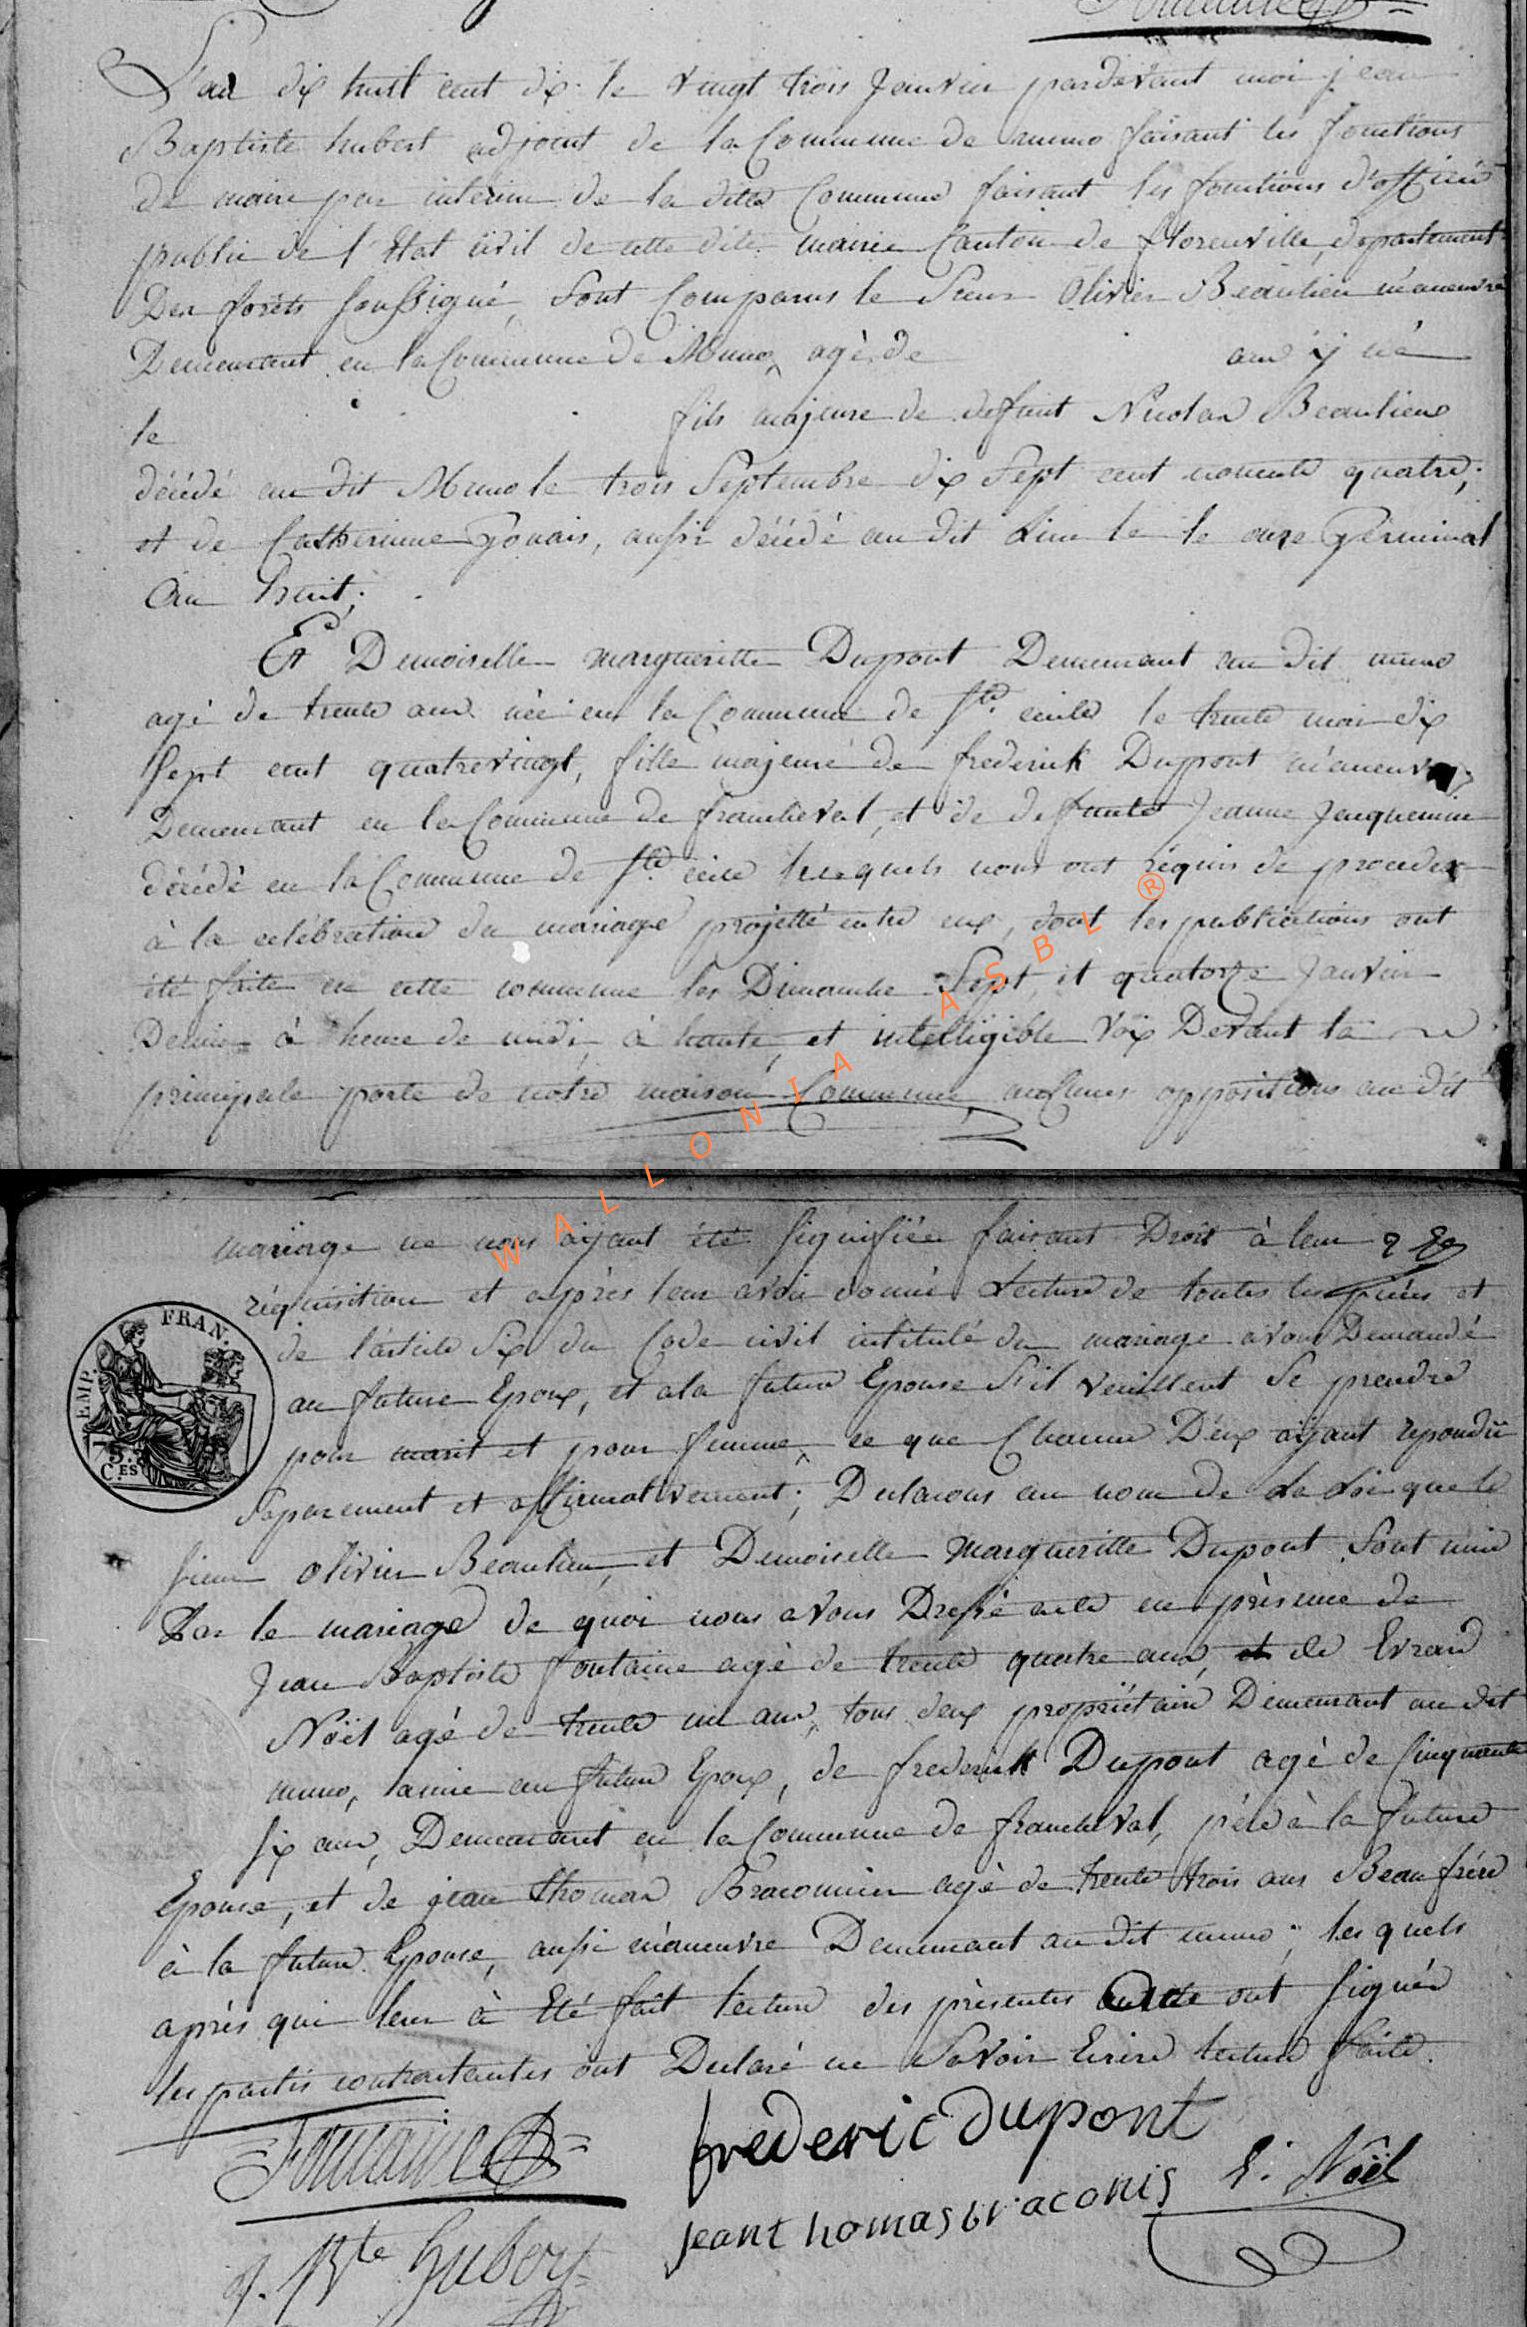 L'an dix huit cent dix le vingt trois Janvier pardevant moi jean
Baptiste hubert adjoint de la Commune de muno faisant les fonctions
de maire par interim de la ditte Commune faisant les fonctions d'officier
public de l'Etat civil de cette dite mairie Canton de florenville, departement
Des forêts soussigné, sont Comparus le Sieur Olivier Beaulieu mâneuvre
Demeurant en la Commune de Muno, agé de ans y né
le fils majeure de defunt Nicolas Beaulieu
décédé au dit Muno le trois Septembre dix Sept cent nonente quatre,
et de Catherinne Gonais, aussi décédé au dit Lieu le le onze Germinal
an huit;
Et Demoiselle margueritte Dupont Demeurant au dit muno
agé de trente ans née en la Commune de Ste cecile le trente mai dix
Sept cent quatrevingt, fille majeure de frederick Dupont mâneuvre
Demeurant en la Commune de francheval, et de defunte Jeanne Jacquemin
décédé en la Commune de Ste cecile lesquels nous ont réquis de proceder
à la celébration du mariage projetté entre eux, dont les publications ont
été faite en cette commune les Dimanche Sept et quatorze Janvier
Dernier à heure de midi, à haute et intelligible voix Devant la
principale porte de notre maison Commune aucunes oppositions au dit
mariage ne nous aÿant été signifiée faisant Droit à leur
réquisition et après leur avoir donné Lecture de toutes les pièces et
de l'article Six du Code civil intitulé du mariage avons Demandé
au future Epoux, et a la future Epouse s'il veuillent se prendre
pour marit et pour femme, ce que Chacun D'eux aÿant repondu
Separement et affirmativement; Declarons au nom de La Loi que le
sieur olivier Beaulieu, et Demoiselle Margueritte Dupont Sont unis
Par le mariage de quoi nous avons Dressé acte en présence de
Jean Baptiste fontaine agé de trente quatre ans, et de Evrard
Nöel agé de trente un ans, tous deux propriétaire Demeurant au dit
muno, amie au futur Epoux, de frederick Dupont agé de Cinquante
six ans, Demeurant en la Commune de francheval, père à la future
Epouse, et de jean thomas Braconnier agé de trente trois ans Beau frére
à la future Epouse, aussi mâneuvre Demeurant au dit muno; les quels
après qui leur à Eté fait lecture des présentes ont signés
les partis contractantes ont Declaré ne Savoir Ecrire lecture faite.
Fontaine
frederic Dupont
E: Noël
jean thomas braconis
J. Bte Hubert
EMP. FRAN.
75. C.ES
WALLONIA ASBL ®